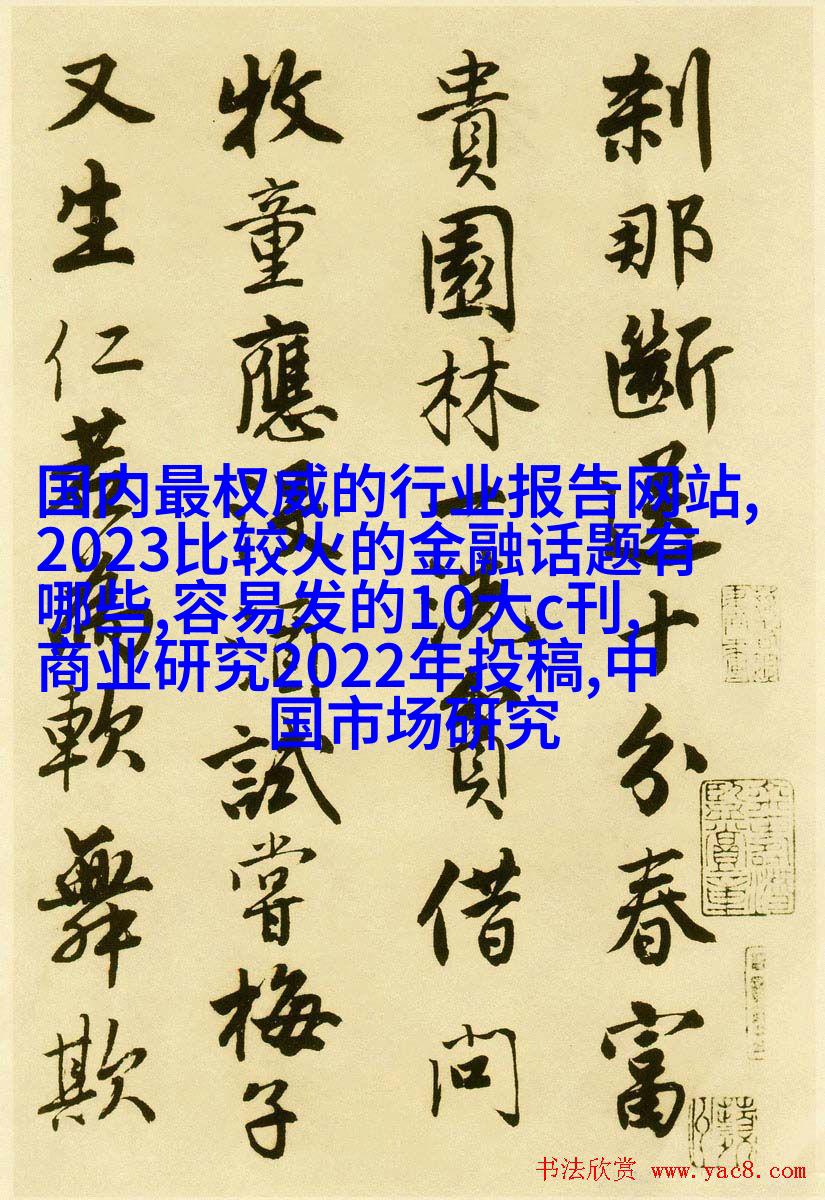 刹那斷送十分春富
貴園林一洗貧借問
牧童應没酒試嘗梅子
又生仁若為軟舞欺
国内最权威的行业报告网站,
2023比较火的金融话题有
哪些,容易发的10大c刊,
商业研究2022年投稿,中
国市场研究
书法欣赏 www.yac8.com